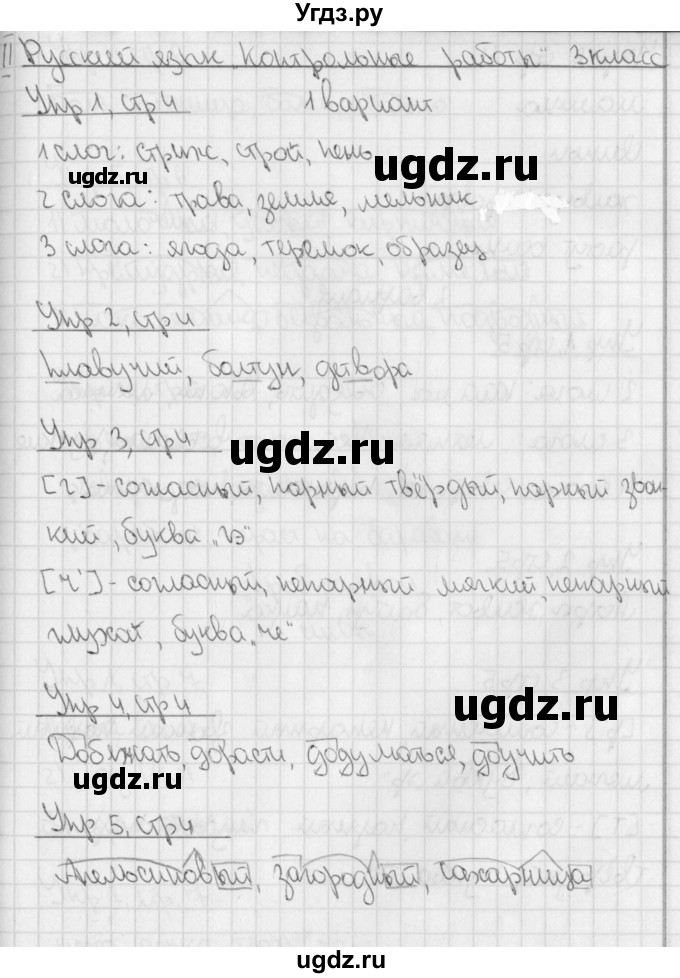 Угдз.ру
Русский язык "Контрольные работы" 3 класс
Упр 1, стр 4 1 вариант
1 слог: стриж, строй, пень
ugdz.ru
ugdz.ru
2 слога: трава, земля, мельник
3 слога: ягода, теремок, образец
Упр 2, стр 4
Плавучий, болтун, детвора
Упр 3, стр 4
ugdz.ru
[г]-согласный, парный твёрдый, парный звон-
кий, буква "гэ"
[ч']-согласный, непарный мягкий, непарный
глухой, буква "че"
Упр 4, стр 4
ugdz.ru
Добежать, дорасти, додуматься, доучить
Упр 5, стр 4
Апельсиновый, загородный, сахарница
ugdz.ru
ugdz.ru